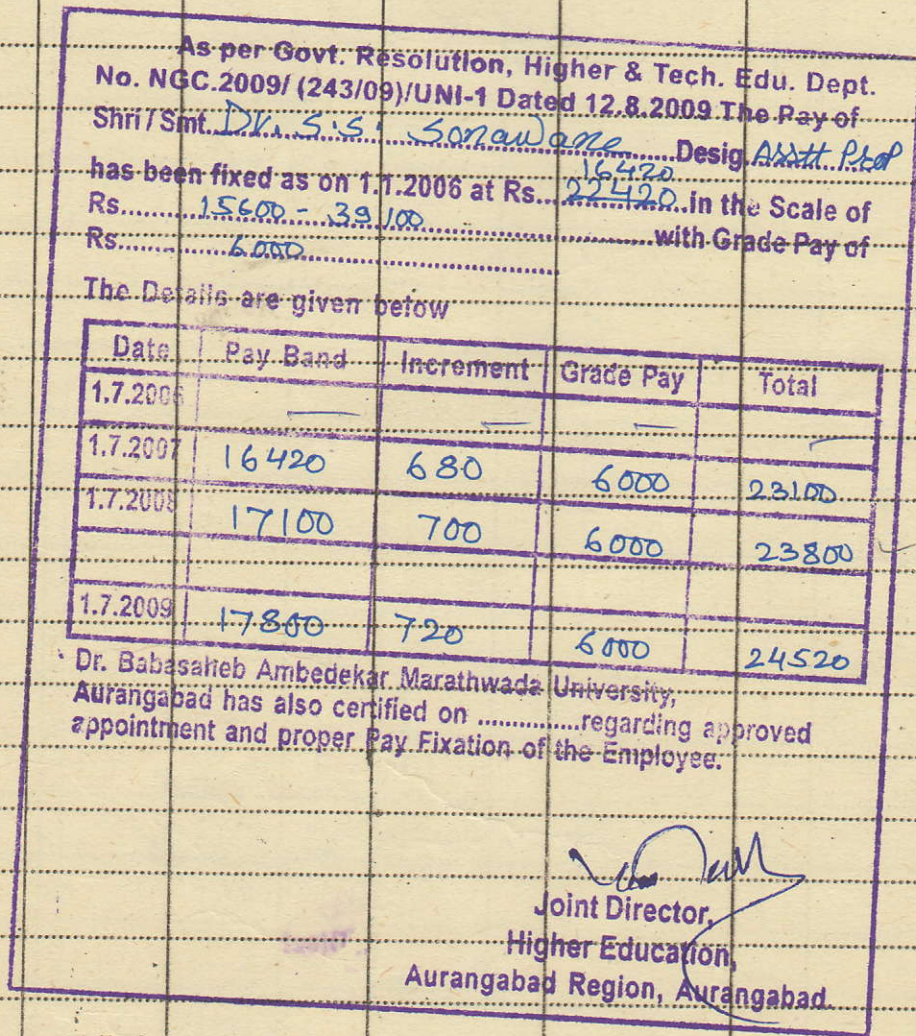 As per Govt. Resolution, Higher & Tech. Edu. Dept.
No. NGC.2009/ (243/09)/UNI-1 Dated 12.8.2009 The Pay of
Shri / Smt. Dr. S.S. Sonawane Desig. Asstt. Prof
16420
has been fixed as on 1.1.2006 at Rs. 22420 in the Scale of
Rs. 15600 - 39100
with Grade Pay of
Rs. 6000
The Details are given below
Date Pay Band Increment Grade Pay Total
1.7.2006 — — — —
1.7.2007 16420 680 6000 23100
1.7.2008 17100 700 6000 23800
1.7.2009 17800 720 6000 24520
Dr. Babasaheb Ambedekar Marathwada University,
Aurangabad has also certified on ...............regarding approved
appointment and proper Pay Fixation of the Employee.
Joint Director,
Higher Education,
Aurangabad Region, Aurangabad.